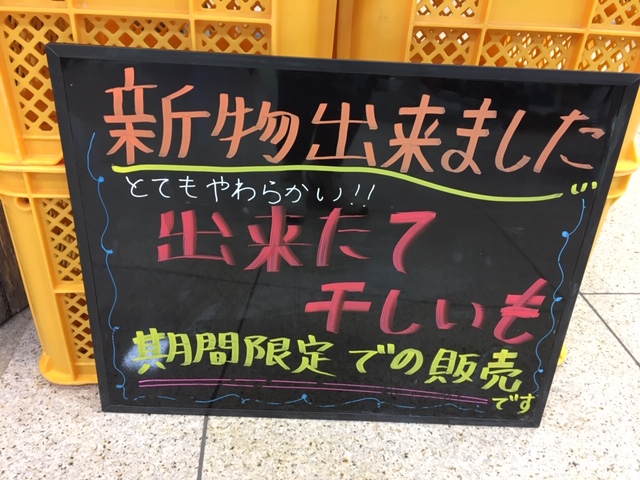 新物出来ました
とてもやわらかい!!
出来たて
干しいも
期間限定での販売
です